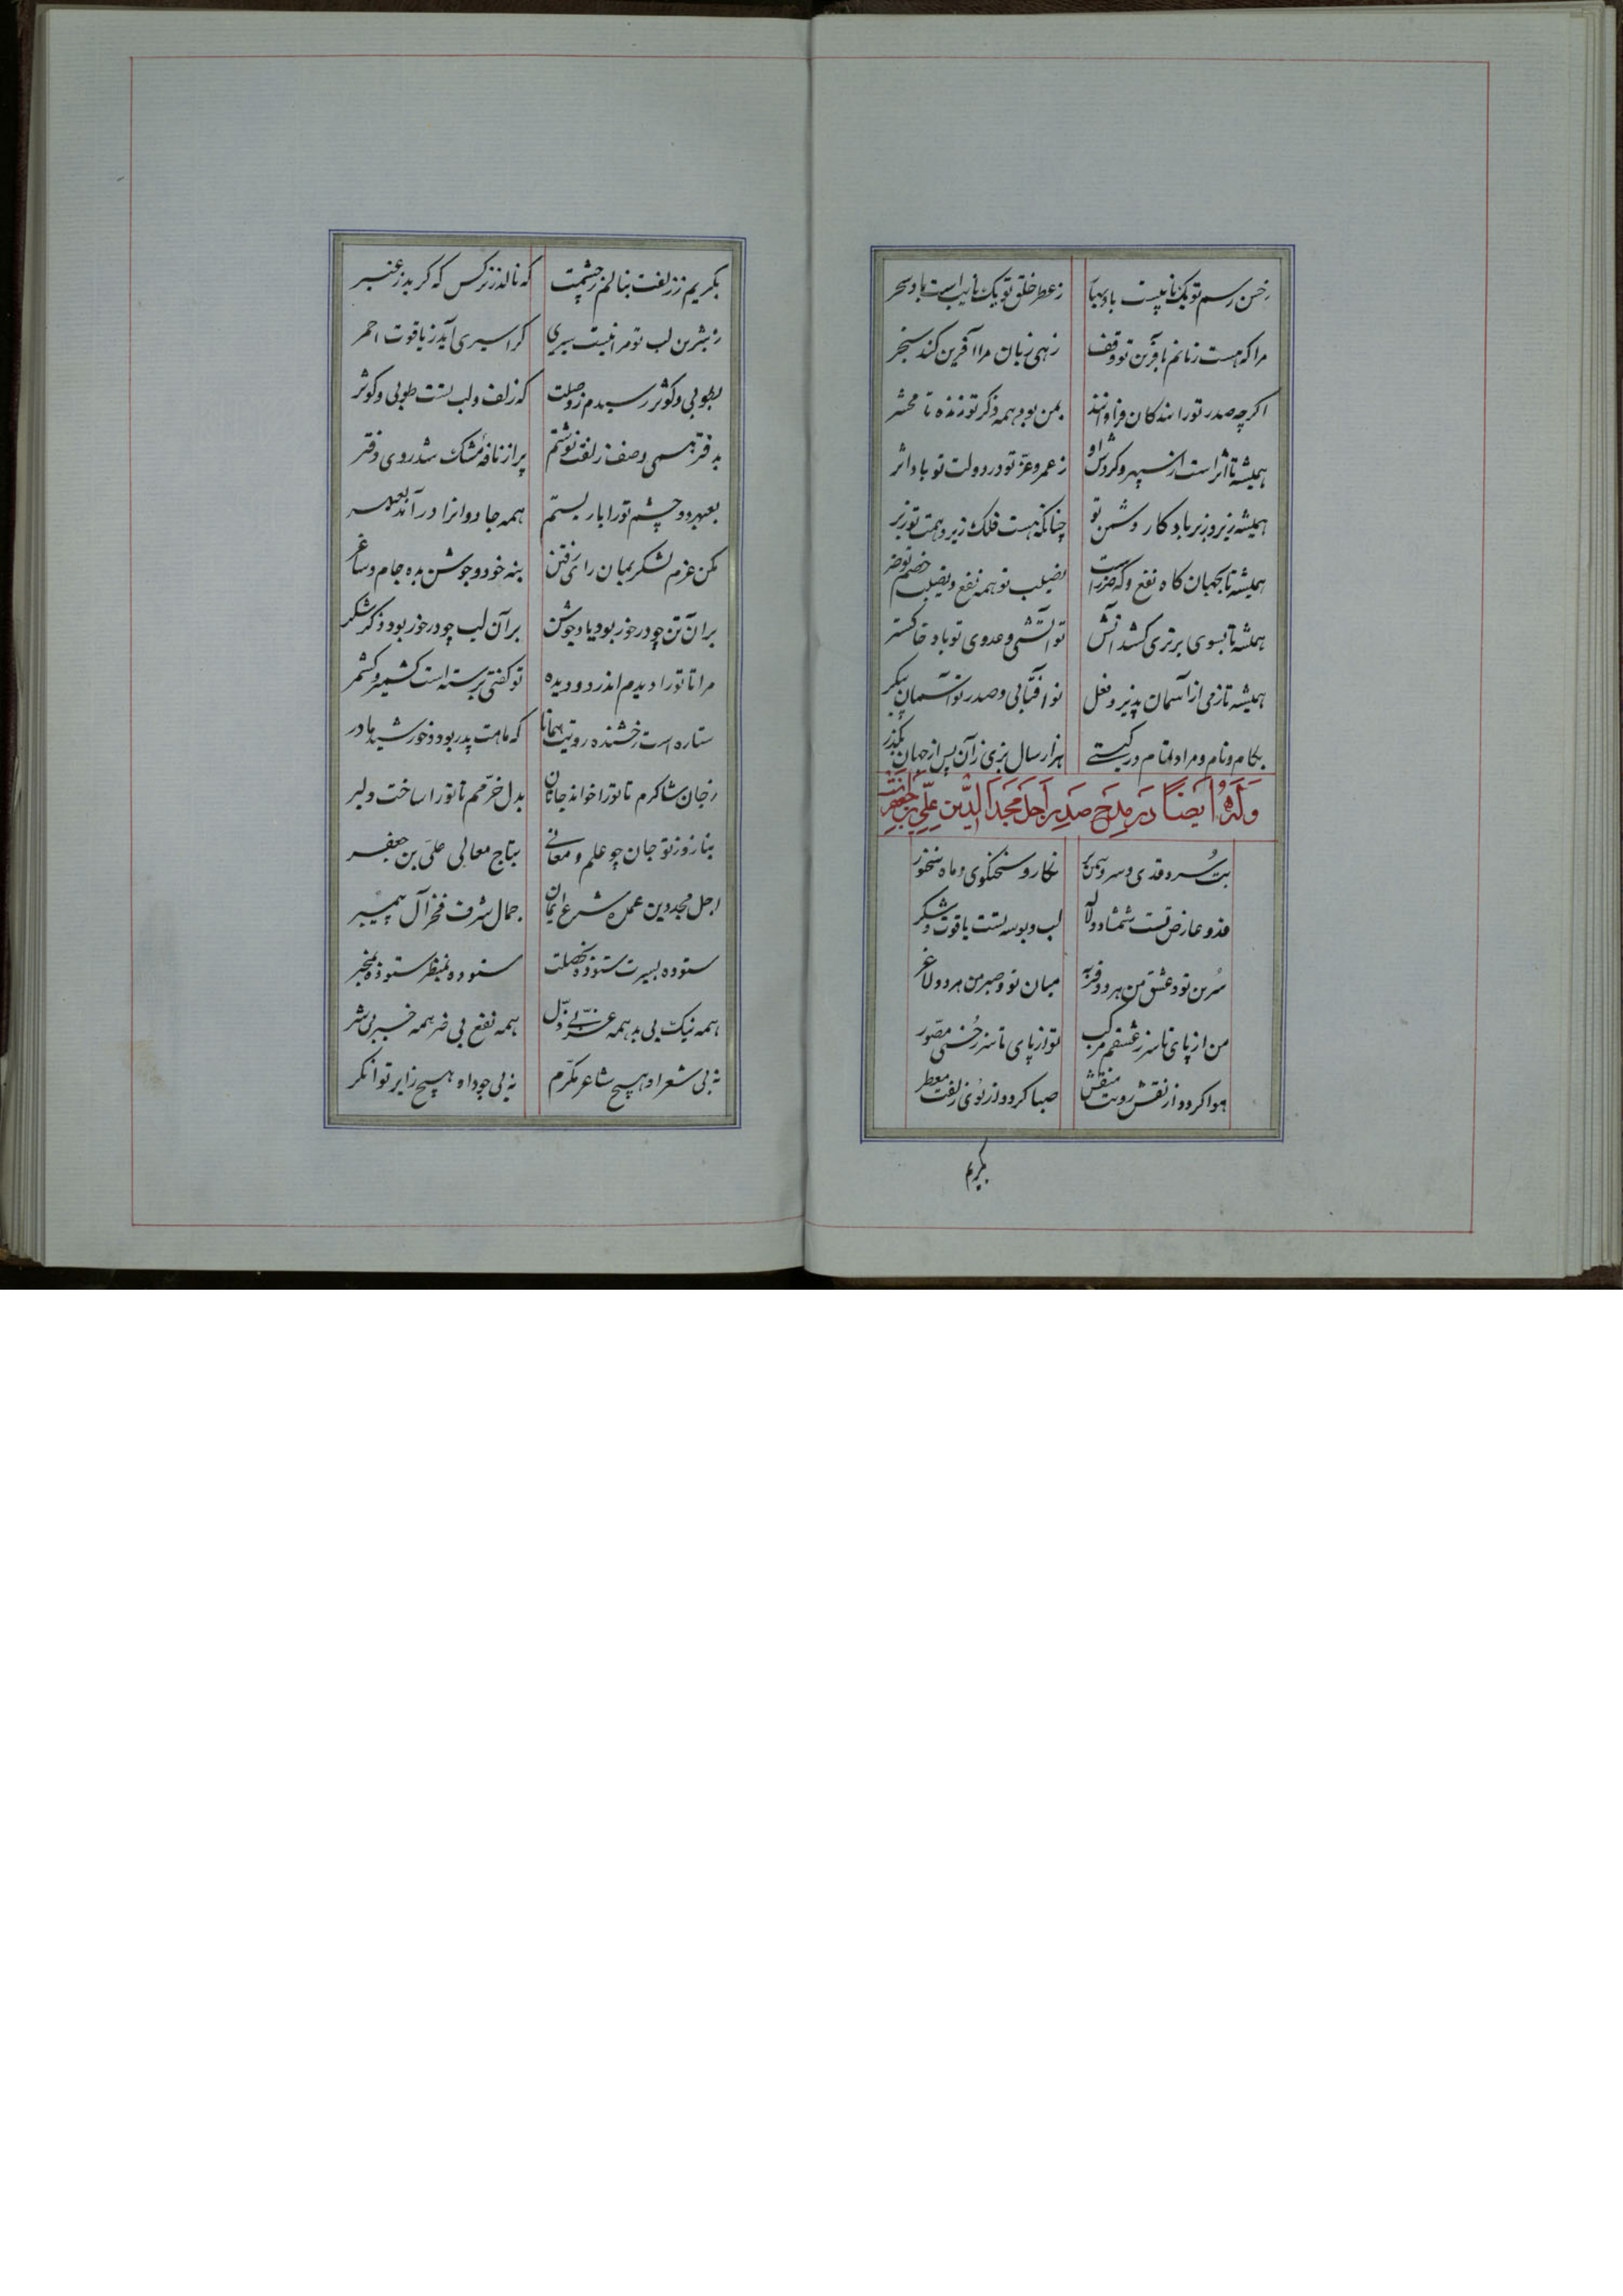 زحسن رسم تو یک نایبست باد بهار زعطر خلق تو یک نایب است باد سحر
مرا که هست زبانم بآفرین تو وقف زهی زبان مرا آفرین کند سنجر
اگرچه صدر تورا بندکان فراوانند بمن بود همه ذکر تو زنده تا محشر
همیشه تا اثر است از سپهر و گردش او زعمر و عز تو در دولت تو باد اثر
همیشه زیر و زبر باد کار دشمن تو چنانکه هست فلک زیر و همت تو زبر
همیشه تا بجهان گاه نفع و که ضرر است نصیب تو همه نفع و نصیب خصم تو ضر
همیشه تا بسوی برتری کشد آتش تو آتشی و عدوی تو باد خاکستر
همیشه تا زمی از آسمان پذیرد فعل تو افتابی و صدر تو آسمان پیکر
بکام و نام و مراد تمام در کیتے هزار سال بزی زآن پس از جهان بگذر
وَلَهُ ایضاً در مدح صدر اجل مجد الدین علی بن جعفر
بت سرو قدی و سرو سمن بر نکار سخنکوی و ماه سخنور
قد و عارض تست شمشاد و لاله لب و بوسه تست یاقوت و شکر
سرین تو و عشق من هر دو فربه میان تو و صبر من هر دو لاغر
من از پای تا سر زعشقم مرکب تو از پای تا سر زحسنی مصور
هوا کرده از نقش رویت منقش صبا کرده از بوی زلفت معطر
بکریم
بکریم ززلفت بنالم زچشمت که نالد زنرکس که کرید زعنبر
زشیرین لب تو مرا نیست سیری کرا سیری آید زیاقوت احمر
بطوبی و کوثر رسیدم زوصلت که زلف و لب تست طوبی و کوثر
بدفتر همی وصف زلفت نوشتم پر از نافه مشک شد روی دفتر
بعهد دو چشم تورا یار بستم همه جادوانرا در آمد بعهد
مکن عزم لشکر بمان رای رفتن بنه خود و جوشن بده جام و ساغر
بر آن تن چو درخور بود یاد جوشن بر آن لب چو درخور بود ذکر شکر
مرا تا تورا دیدم اندر دو دیده تو کفتی برسته است کشمیر و کشمر
ستاره است رخشنده رویت همانا که ماهت پدر بود و خورشید مادر
زجان شاکرم تا تورا خواند جانان بدل خرمم تا تورا ساخت دلبر
بنازد زتو جان چو علم و معانی بتاج معالی علی بن جعفر
اجل مجد دین عمده شرع ایمان جمال شرف فخر آل پیمبر
ستوده بسیرت ستوده بخصلت ستوده بمنظر ستوده بمخبر
همه نیک بی بد همه عز بی ذل همه نفع بی ضر همه خیر بی شر
نه بی شعر او هیچ شاعر مکرم نه بی جود او هیچ زایر توانکر